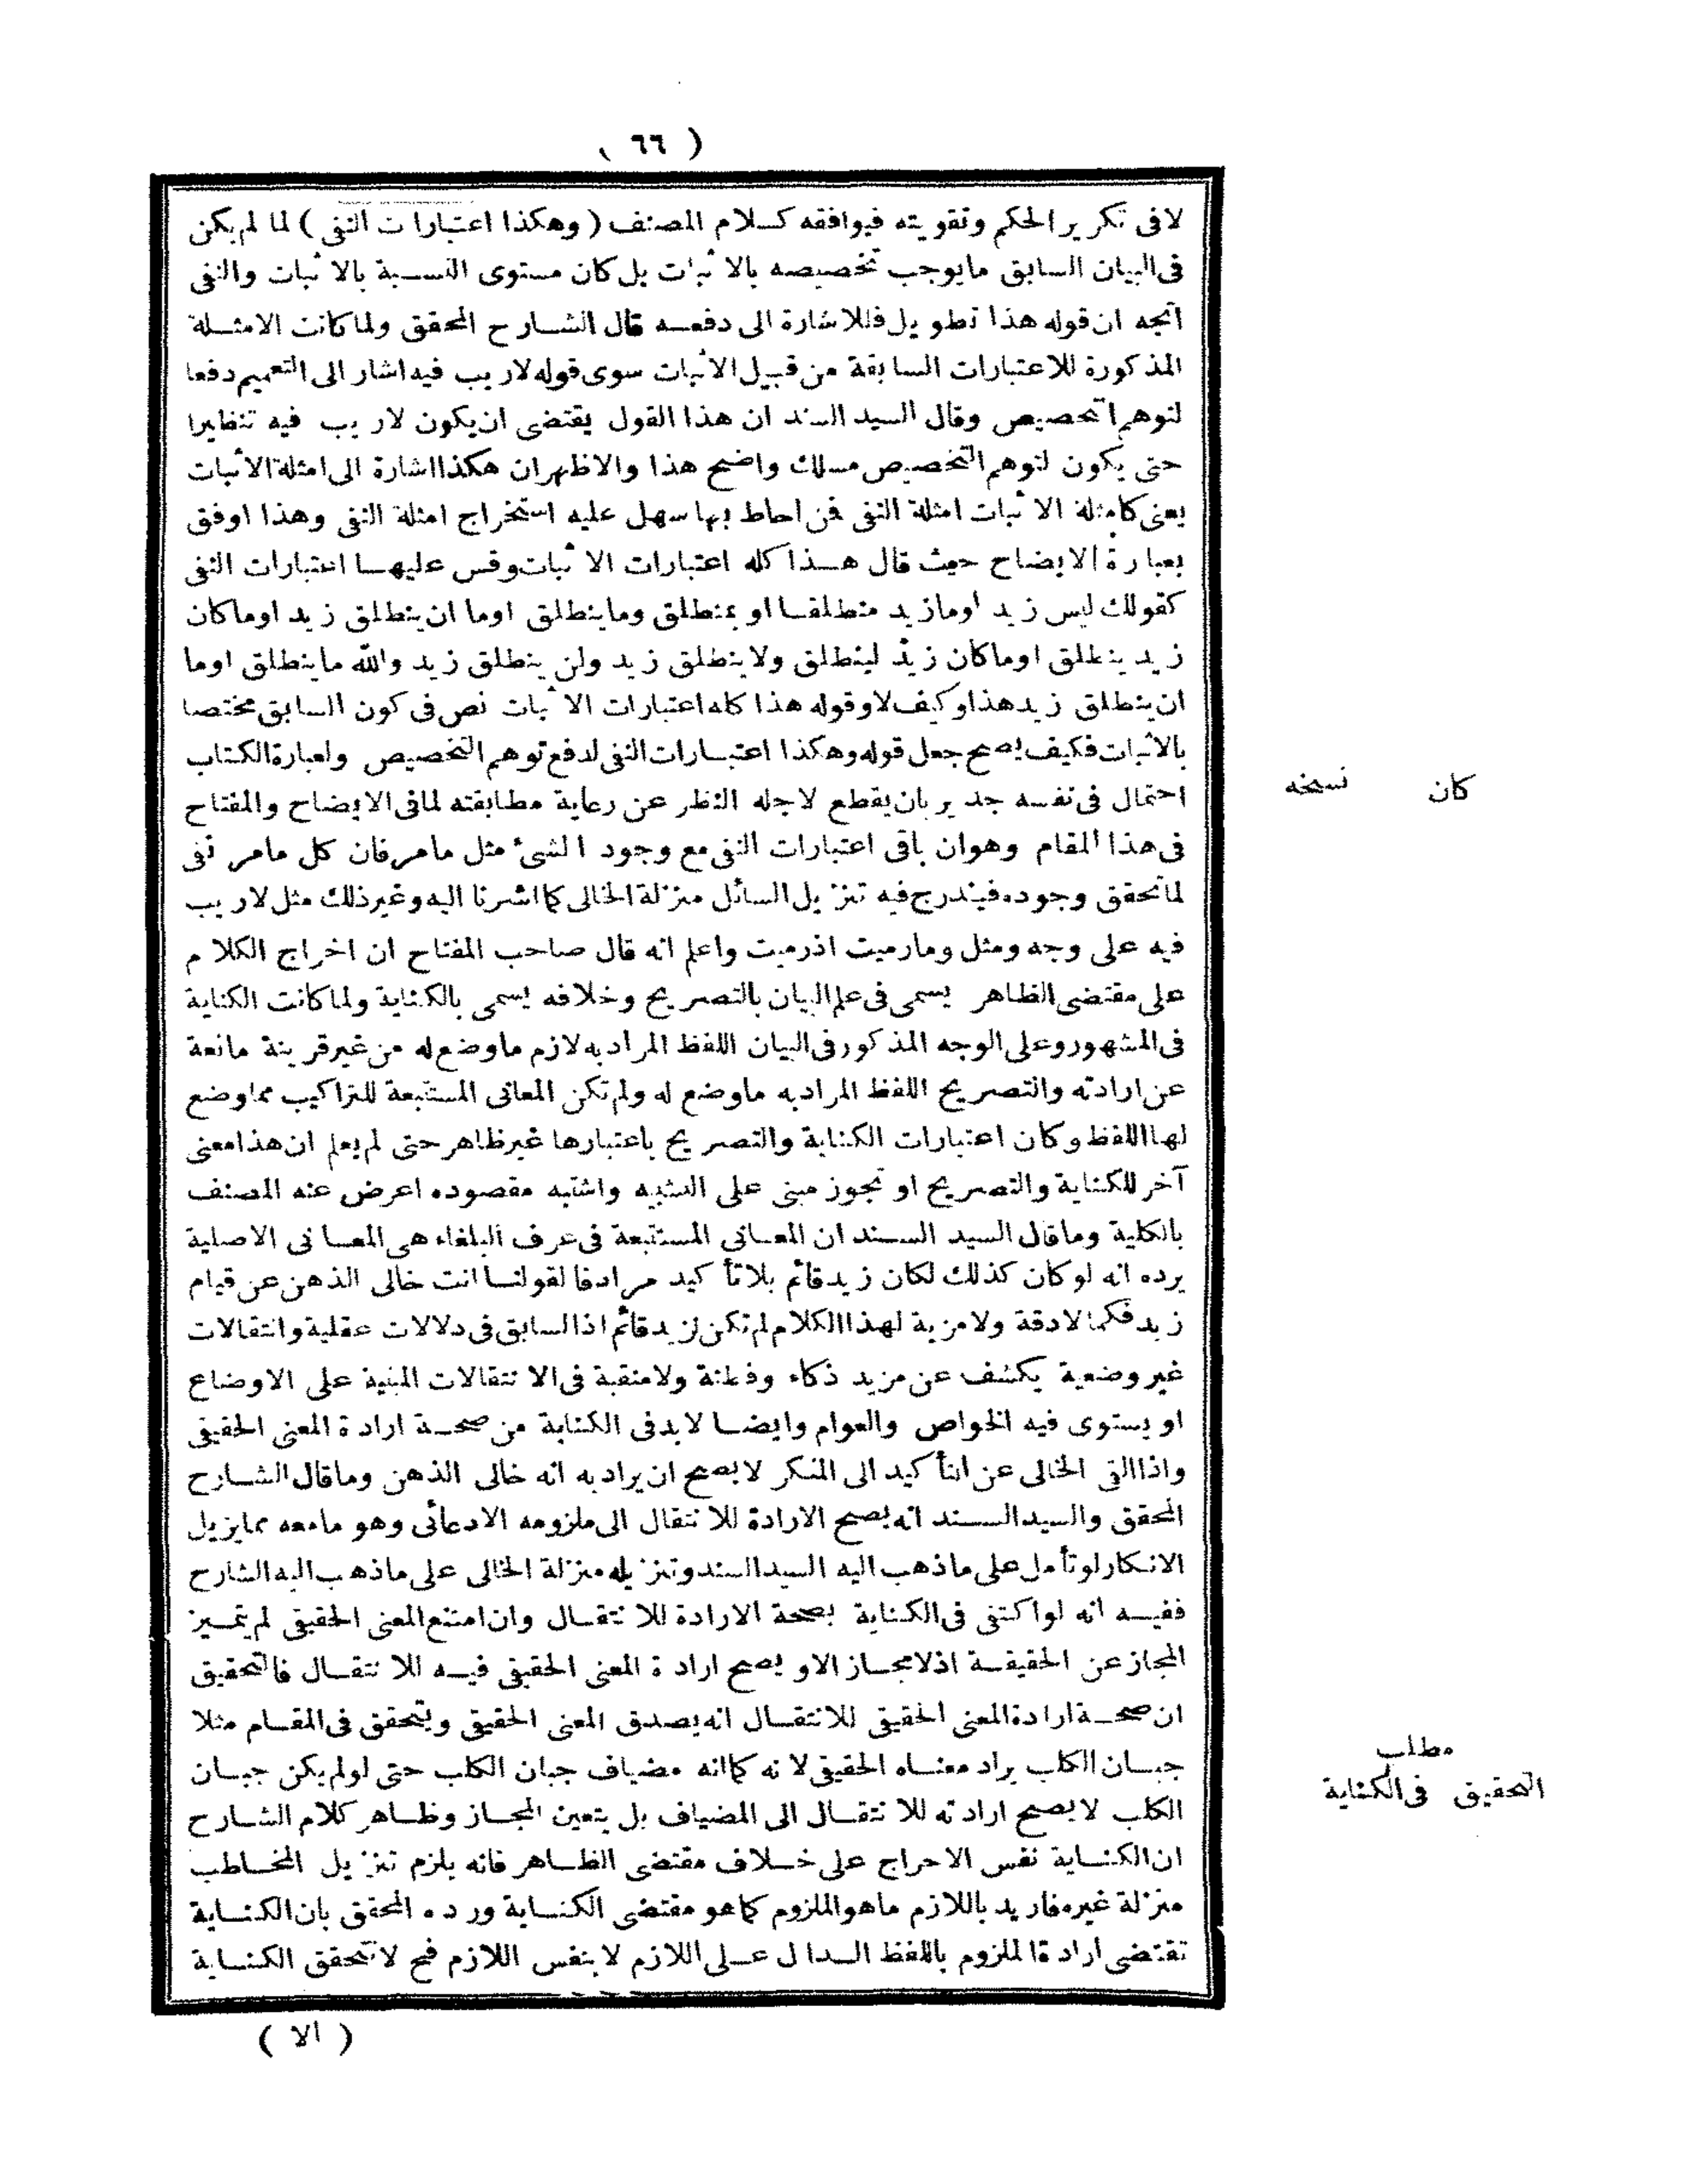 ( ٦٦ )
لافى تكرير الحكم وتقويته فيوافقه كلام المصنف ( وهكذا اعتبارات النفى ) لما لم يكن
فى البيان السابق مايوجب تخصيصه بالاثبات بل كان مستوى النسبة بالاثبات والنفى
اتجه ان قوله هذا تطويل فللاشارة الى دفعه قال الشارح المحقق ولما كانت الامثلة
المذكورة للاعتبارات السابقة من قبيل الاثبات سوى قوله لاريب فيه اشار الى التعميم دفعا
لتوهم التخصيص وقال السيد السند ان هذا القول يقتضى ان يكون لاريب فيه تنظيرا
حتى يكون لتوهم التخصيص مسلك واضح هذا والاظهر ان هكذا اشارة الى امثلة الاثبات
يعنى كامثلة الاثبات امثلة النفى فمن احاط بها سهل عليه استخراج امثلة النفى وهذا اوفق
بعبارة الايضاح حيث قال هذا كله اعتبارات الاثبات وقس عليها اعتبارات النفى
كقولك ليس زيد اومازيد منطلقا او بمنطلق وماينطلق اوما ان ينطلق زيد اوماكان
زيد ينطلق اوماكان زيد لينطلق ولاينطلق زيد ولن ينطلق زيد والله ماينطلق اوما
ان ينطلق زيد هذا وكيف لا وقوله هذا كله اعتبارات الاثبات نص فى كون السابق مختصا
بالاثبات فكيف يصح جعل قوله وهكذا اعتبارات النفى لدفع توهم التخصيص ولعبارة الكتاب
احتمال فى نفسه جدير بان يقطع لاجله النظر عن رعاية مطابقته لما فى الايضاح والمفتاح
كان نسخه
فى هذا المقام وهوان باقى اعتبارات النفى مع وجود الشئ مثل مامر فان كل مامر نفى
لما تحقق وجوده فيندرج فيه تنزيل السائل منزلة الخالى كما اشرنا اليه وغير ذلك مثل لاريب
فيه على وجه ومثل ومارميت اذرميت واعلم انه قال صاحب المفتاح ان اخراج الكلام
على مقتضى الظاهر يسمى فى علم البيان بالتصريح وخلافه يسمى بالكناية ولما كانت الكناية
فى المشهور وعلى الوجه المذكور فى البيان اللفظ المراد به لازم ماوضع له من غير قرينة مانعة
عن ارادته والتصريح اللفظ المراد به ماوضع له ولم تكن المعانى المستتبعة للتراكيب مماوضع
لها اللفظ وكان اعتبارات الكناية والتصريح باعتبارها غير ظاهر حتى لم يعلم ان هذا معنى
آخر للكناية والتصريح او تجوز مبنى على التشبيه واشتبه مقصوده اعرض عنه المصنف
بالكلية وماقال السيد السند ان المعانى المستتبعة فى عرف البلغاء هى المعانى الاصلية
يرده انه لوكان كذلك لكان زيد قائم بلاتأكيد مرادفا لقولنا انت خالى الذهن عن قيام
زيد فكما لادقة ولامزية لهذا الكلام لم تكن لزيد قائم اذالسابق فى دلالات عقلية وانتقالات
غير وضعية يكشف عن مزيد ذكاء وفطنة ولامنقبة فى الانتقالات المبنية على الاوضاع
او يستوى فيه الخواص والعوام وايضا لابد فى الكناية من صحة ارادة المعنى الحقيقى
واذاالقى الخالى عن التأكيد الى المنكر لايصح ان يراد به انه خالى الذهن وماقال الشارح
المحقق والسيد السند انه يصح الارادة للانتقال الى ملزومه الادعائى وهو مامعه ممايزيل
الانكار لوتأمل على ماذهب اليه السيد السند وتنزيله منزلة الخالى على ماذهب اليه الشارح
ففيه انه لواكتفى فى الكناية بصحة الارادة للانتقال وان امتنع المعنى الحقيقى لم يتميز
المجاز عن الحقيقة اذلامجاز الاويصح ارادة المعنى الحقيقى فيه للانتقال فالتحقيق
ان صحة ارادة المعنى الحقيقى للانتقال انه يصدق المعنى الحقيقى ويتحقق فى المقام مثلا
مطلب
التحقيق فى الكناية
جبان الكلب يراد معناه الحقيقى لانه كما انه مضياف جبان الكلب حتى لولم يكن جبان
الكلب لايصح ارادته للانتقال الى المضياف بل يتعين المجاز وظاهر كلام الشارح
ان الكناية نفس الاحراج على خلاف مقتضى الظاهر فانه يلزم تنزيل المخاطب
منزلة غيره فاريد باللازم ماهو الملزوم كماهو مقتضى الكناية ورده المحقق بان الكناية
تقتضى ارادة الملزوم باللفظ الدال على اللازم لابنفس اللازم فح لاتتحقق الكناية
( الا )